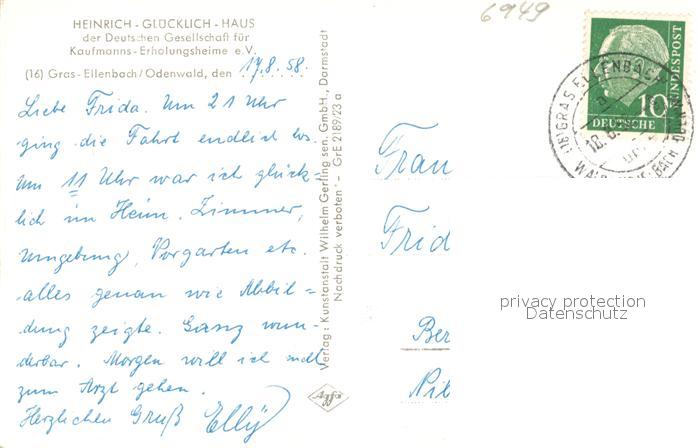 6949
HEINRICH - GLÜCKLICH - HAUS
der Deutschen Gesellschaft für
Kaufmanns-Erholungsheime e.V.
(16) Gras-Ellenbach/Odenwald, den 17.8.58.
Liebe Frida. Um 21 Uhr
ging die Fahrt endlich los.
Um 11 Uhr war ich glück=
lich im Heim. Zimmer,
Umgebung, Vorgarten etc.
alles genau wie Abbil=
dung zeigte. Ganz wun=
derbar. Morgen will ich
zum Arzt gehen.
Herzlichen Gruß Elly
Verlag: Kunstanstalt Wilhelm Gerling sen. GmbH., Darmstadt
Nachdruck verboten - GrE 2189/23 a
Frau
Frid
Ber
Nib
10
DEUTSCHE
BUNDESPOST
(16) GRAS-ELLENBACH
a
privacy protection
Datenschutz